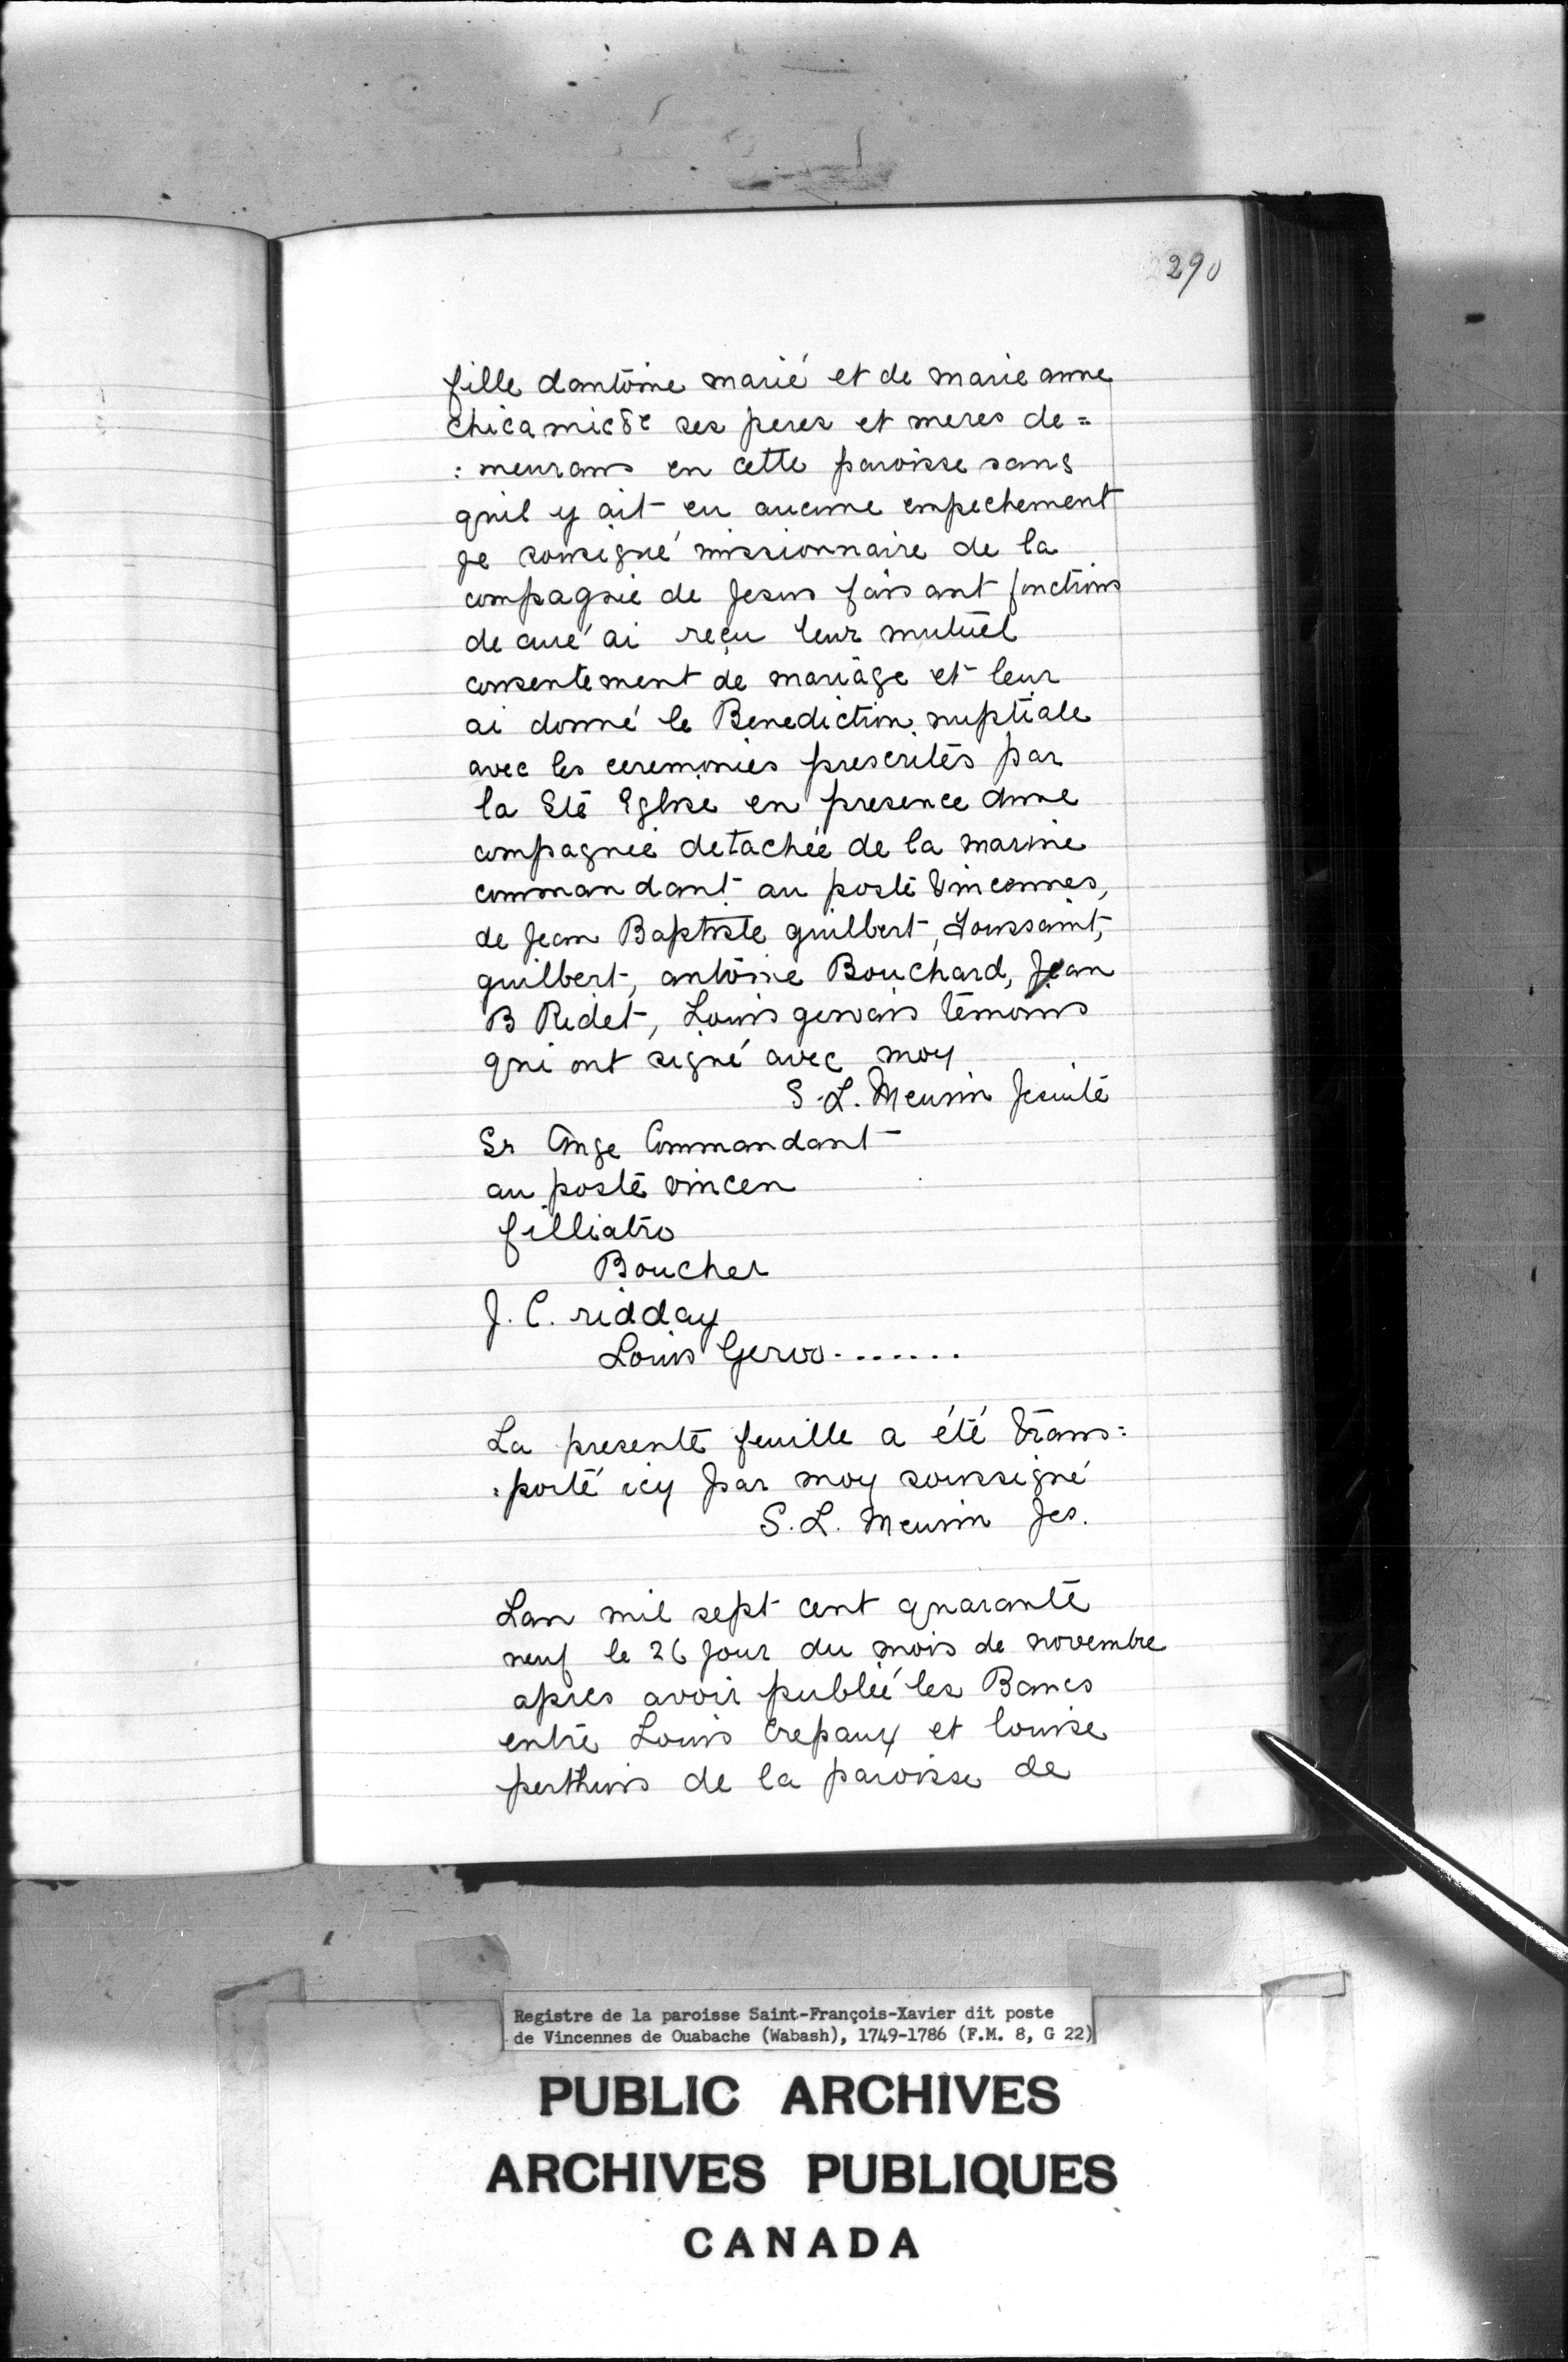 290
fille dantoine marié et de marie anne
chicamic8e ses peres et meres de=
:meurans en cette paroisse sans
quil y ait eu aucune empechement
je sousigné missionnaire de la
compagnie de Jesus faisant fonctions
de curé ai reçu leur mutuel
consentement de mariage et leur
ai donné le Benediction nuptiale
avec les ceremonies prescrites par
la Ste Eglise en presence dune
compagnie detachée de la marine
commandant au poste Vincennes,
de Jean Baptiste guilbert, Toussaint,
guilbert, antoine Bouchard, Jean
B Ridet, Louis gervais temoins
qui ont signé avec moy
S. L. Meurin Jesuite
Sr Ange Commandant
au poste vincen
filliatro
Boucher
J. C. ridday
Louis Gervo.......
La presente feuille a été trans:
:porté icy par moy soussigné
S. L. Meurin Jes.
Lan mil sept cent quarante
neuf le 26 jour du mois de novembre
apres avoir publié les Bancs
entre Louis Crepaux et louise
perthuis de la paroisse de
Registre de la paroisse Saint-François-Xavier dit poste
de Vincennes de Ouabache (Wabash), 1749-1786 (F.M. 8, G 22)
PUBLIC ARCHIVES
ARCHIVES PUBLIQUES
CANADA